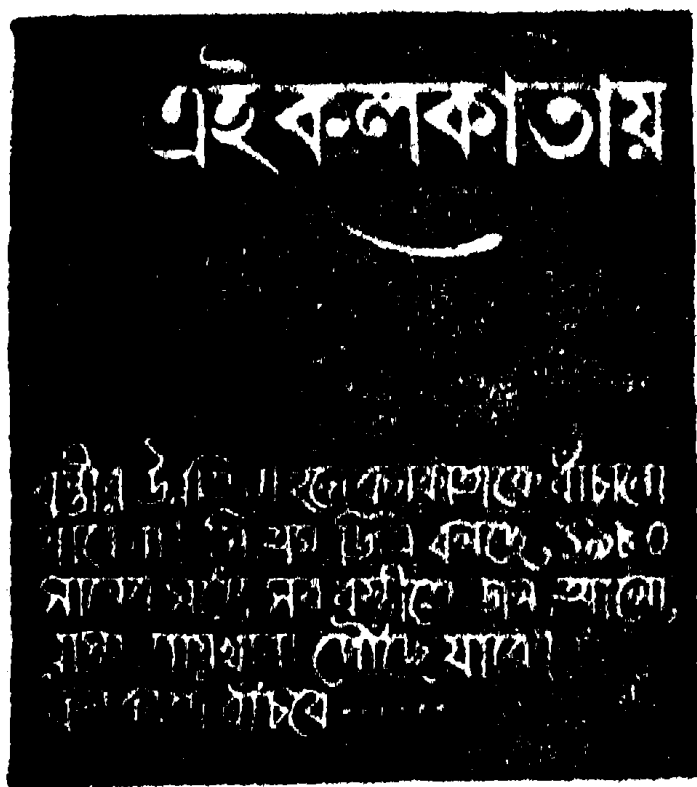 এই কলকাতায়
বস্তীর উন্নতি না হলে কলকাতাকে বাঁচানো
যাবে না। সি এম ডি এ বলছে, ১৯৮০
সালের মধ্যে সব বস্তীতে জল, আলো,
রাস্তা, পায়খানা পৌঁছে যাবে।
বাঁচবে